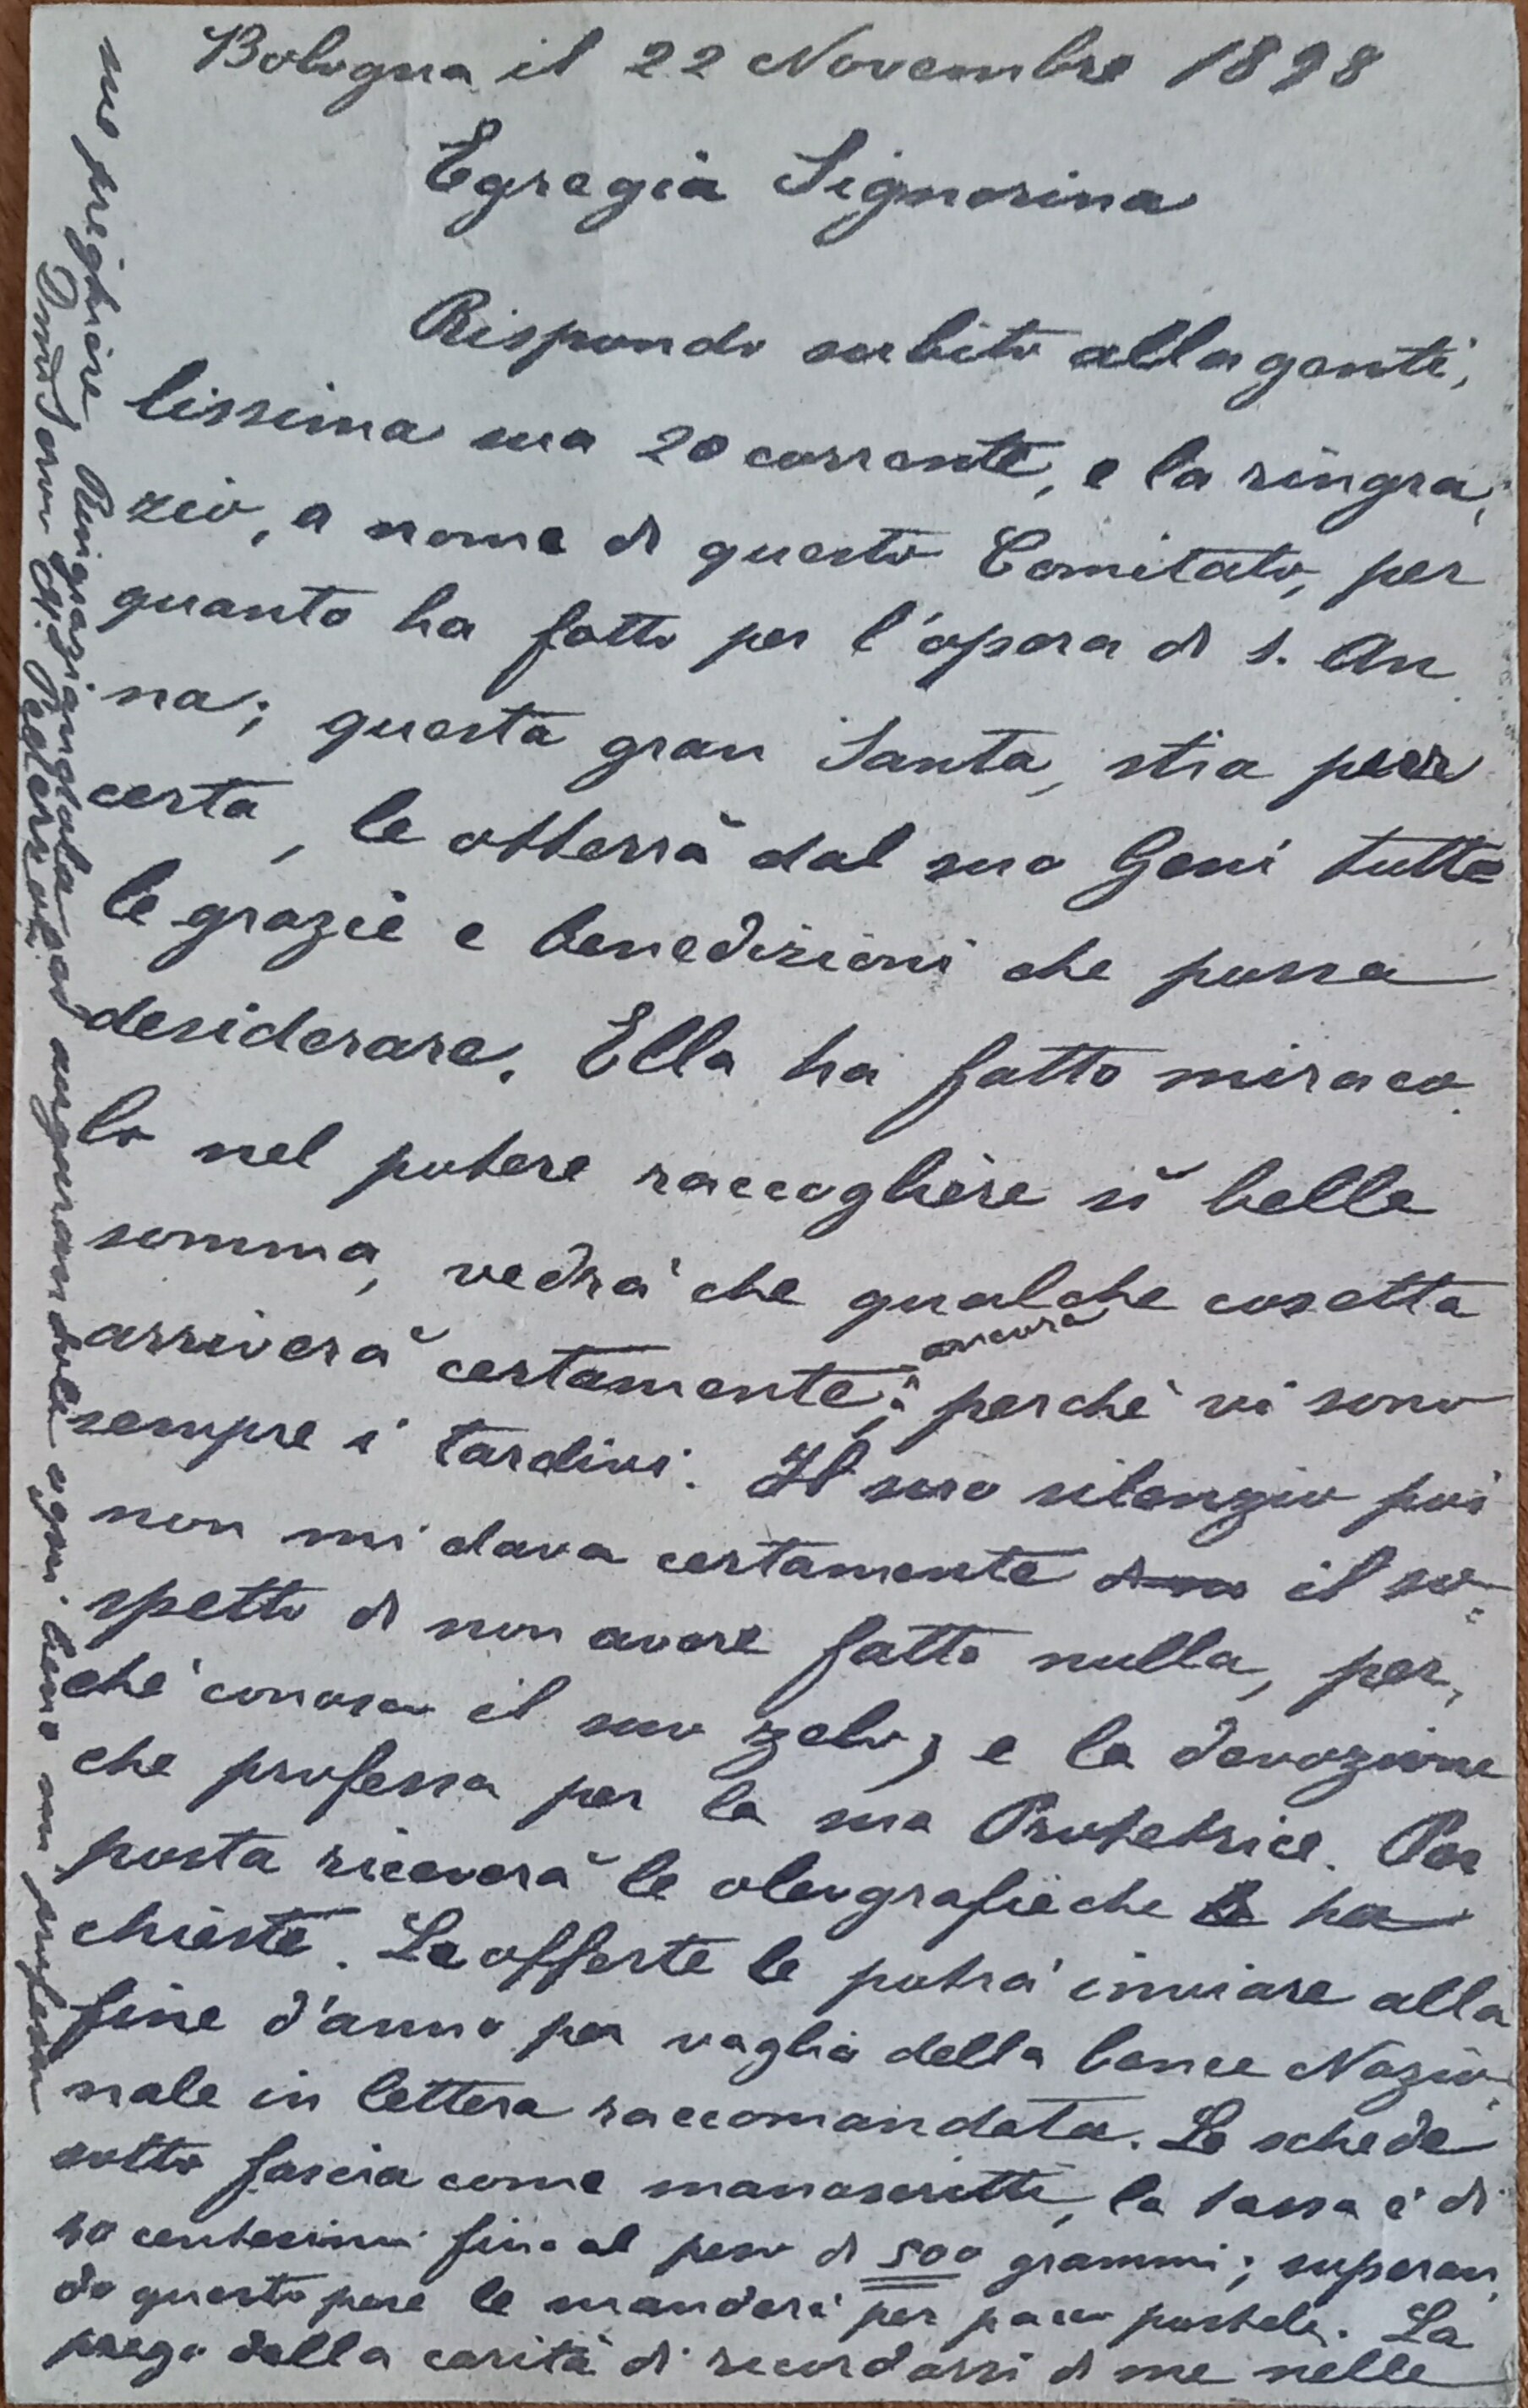 Bologna il 22 Novembre 1898
Egregia Signorina
Rispondo subito alla genti,
lissima sua 20 corrente, e la ringra,
zio, a nome di questo Comitato, per
quanto ha fatto per l'opera di S. An
na; questa gran Santa, stia pur
certa, le otterrà dal suo Gesù tutte
le grazie e benedizioni che possa
desiderare. Ella ha fatto miraco
lo nel potere raccogliere sì bella
somma, vedrà che qualche cosetta
arriverà certamente ancora; perchè vi sono
sempre i tardivi. Il suo silenzio poi
non mi dava certamente il so-
spetto di non avere fatto nulla, per,
chè conosco il suo zelo, e la devozione
che professa per la sua Protetrice. Per
posta riceverà le oleografie che ha
chieste. Le offerte le potrà inviare alla
fine d'anno per vaglia della banca Nazio,
nale in lettera raccomandata. Le schede
sotto fascia come manoscritti, la tassa è di
centesimi fino al peso di 500 grammi; superan,
do questo peso le manderà per pacco postale. La
prego della carità di ricordarsi di me nelle
sue preghiere. Ringraziandola ed augurandole ogni bene mi professo